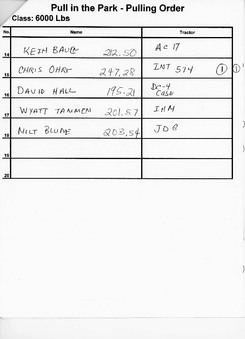 Pull in the Park - Pulling Order
Class: 6000 Lbs
No. Name Tractor
14 KEITH 212.50 AC 17
15 CHRIS OHRT 247.28 INT 574 1 1
16 DAVID HALL 195.21 DC-4 CASE
17 WYATT 201.57 IHM
18 203.54 JD
19
20